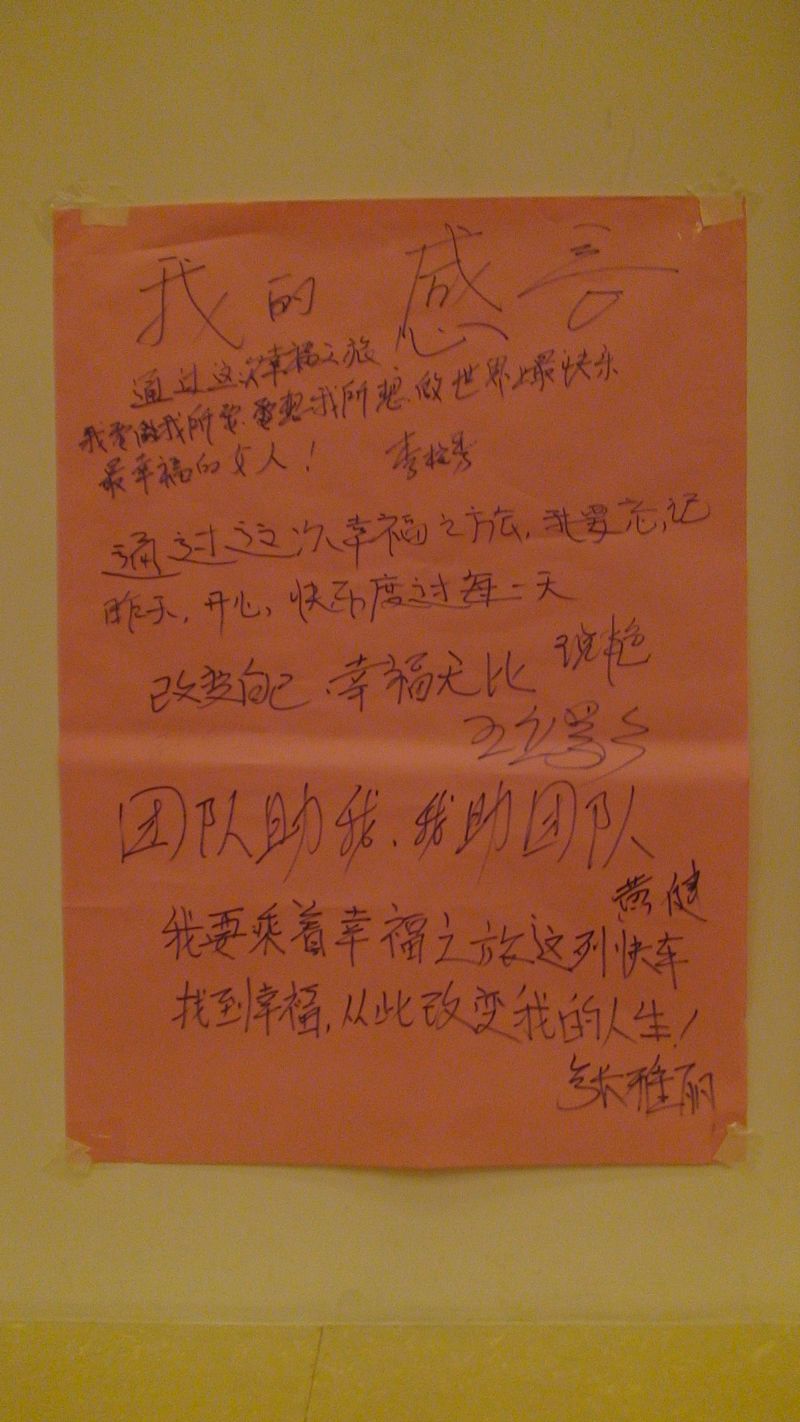 我的感言
通过这次幸福之旅
我要做我所要，要想我所想，做世界上最快乐
最幸福的女人！
通过这次幸福之旅，我要忘记
昨天，开心，快乐度过每一天
改变自己，幸福无比
团队助我、我助团队
我要乘着幸福之旅这列快车
找到幸福，从此改变我的人生！
张雅丽